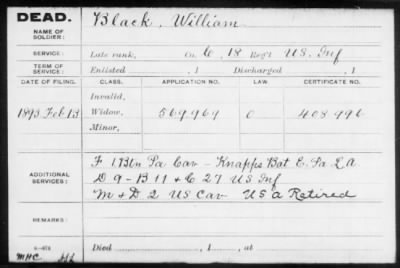 DEAD.
NAME OF SOLDIER: Black, William
SERVICE: Late rank, Co. C, 18 Reg't U.S. Inf
TERM OF SERVICE: Enlisted , 1 Discharged , 1
DATE OF FILING. CLASS. APPLICATION NO. LAW. CERTIFICATE NO.
Invalid,
1893 Feb 13 Widow, 569.969 0 408.996
Minor,
ADDITIONAL SERVICES: F 1 Btln Pa Cav - Knapps Bat E. Pa L A
D 9 - B 11 & C 27 US Inf
M & D 2 US Cav USA Retired
REMARKS:
Died , 1 , at
MHC